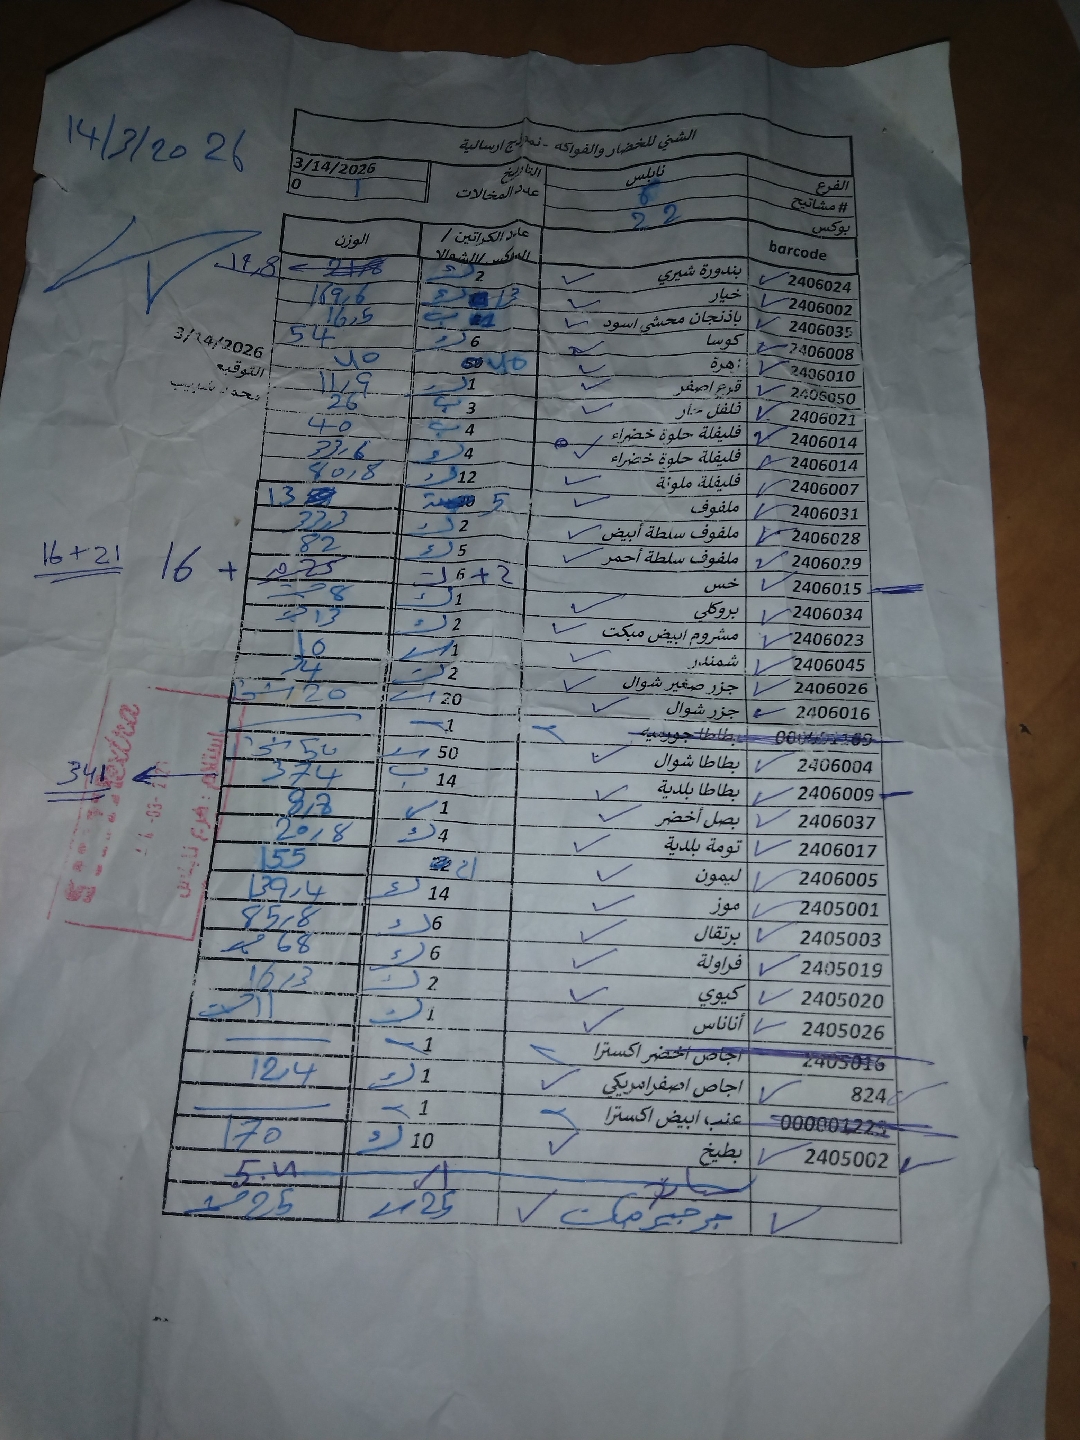 14/3/2026
الشني للخضار والفواكه - نموذج ارسالية
الفرع نابلس التاريخ 3/14/2026
# مشاتيح 6 عدد المخالات 0 1
بوكس 22
barcode عدد الكراتين / البوكس/الشوال الوزن
2406024 بندورة شيري 2 ك 21,8 19,8
2406002 خيار 13 ك 169,6
2406035 باذنجان محشي اسود ب 16,5
2406008 كوسا 6 ك 54
2406010 زهرة 40 40
2406050 قرع اصفر 1 ك 11,9
2406021 فلفل حار 3 ب 26
2406014 فليفلة حلوة خضراء 4 ب 40
2406014 فليفلة حلوة خضراء 4 ك 33,6
2406007 فليفلة ملونة 12 ك 80,8
2406031 ملفوف 5 13
2406028 ملفوف سلطة أبيض 2 ك 33,3
2406029 ملفوف سلطة أحمر 5 ك 82
2406015 خس 6 + 2 ك 25 + 16 16+21
2406034 بروكلي 1 ك 8
2406023 مشروم ابيض مبكت 2 ك 13
2406045 شمندر 1 10
2406026 جزر صغير شوال 2 24
2406016 جزر شوال 20 20
بطاطا 1
2406004 بطاطا شوال 50 50
2406009 بطاطا بلدية 14 ب 374 341
2406037 بصل أخضر 1 9,8
2406017 تومة بلدية 4 ك 20,8
2406005 ليمون 21 155
2405001 موز 14 ك 139,4
2405003 برتقال 6 ك 85,8
2405019 فراولة 6 ك 68
2405020 كيوي 2 ك 16,3
2405026 أناناس 1 ك 11
2405016 اجاص اخضر اكسترا 1
824 اجاص اصفر امريكي 1 ك 12,4
000001221 عنب ابيض اكسترا 1
2405002 بطيخ 10 ك 170
جرجير مبكت 25 25
3/14/2026
التوقيع
استلام فرع نابلس